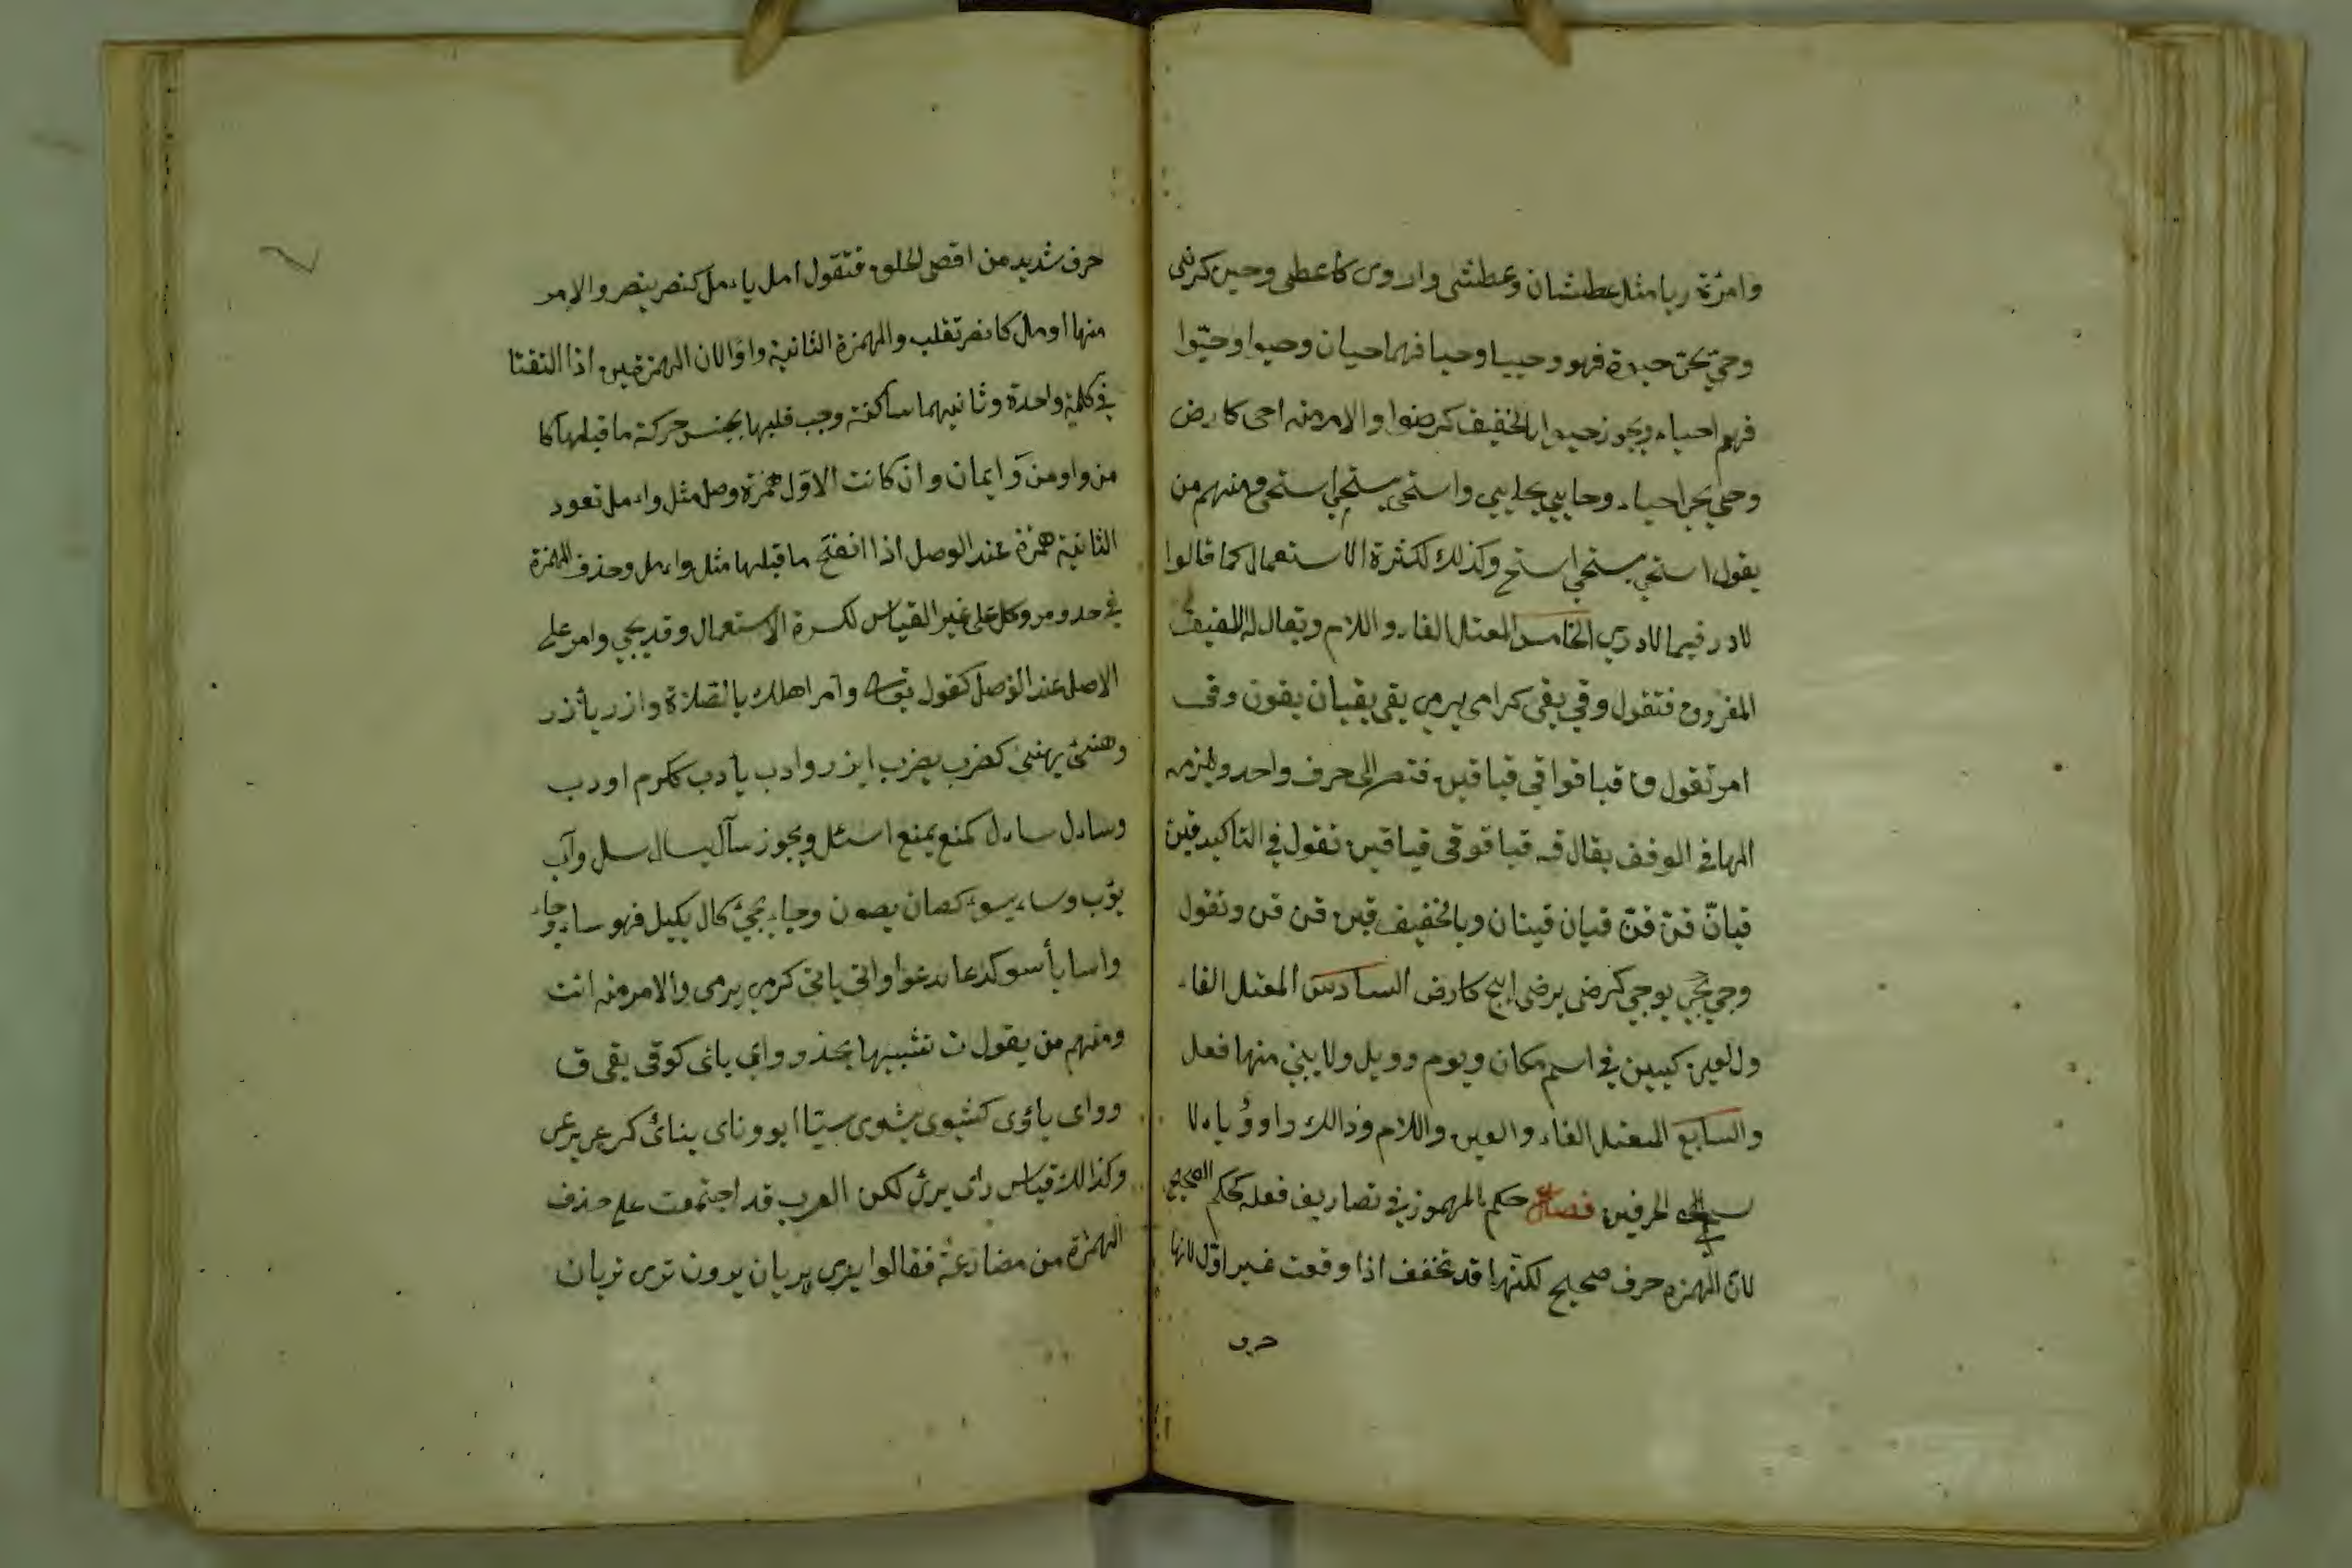 وامرٔة ريا مثل عطشان وعطشى واروى كاعطى وحيى كرضى
وحيّ يحيّ حيوة فهو وحييا وحيا فهما حييان وحيوا وحيّوا
فهم احياء ويجوز حيوا بالتخفيف كرضوا والامر منه احى كارض
وحيي يحيي احياء وحايي يحايي واستحى يستحيي استحى ومنهم من
يقول استحي يستحي استح وكذلك لكثرة الاستعمال كما قالوا
لادر فيما لاادري الخامس المعتل الفاء واللام ويقال له اللفيف
المفروق فتقول وقي يقي كرامى يرمي يقي يقيان يقون وفى
امر تقول ق قيا قوا قي قيا قين فتصر الى حرف واحد ويلزمه
الها في الوقف يقال قه قيا قو قي قيا قين تقول في التاكيد قين
قيانّ قنّ قنّ قيان قينان وبالخفيف قين قن قن وتقول
وجي يجي يوجي كرضى يرضى ايج كارض السادس المعتل الفاء
ول لعين كيين في اسم مكان ويوم وويل ولا يبني منها فعل
والسابع المعتل الفاء والعين واللام وذالك واو ؤ ياء لا
الحرفين فصل حكم المهموز في تصاريف فعله كحكم الصحيح
لان الهمزه حرف صحيح لكنّها قد تخفف اذا وقعت غير اوّل لانها
حرف
حرف شديد من اقصى الحلق فتقول امل ياءمل كنصر ينصر والامر
منها اومل كانصر تقلب والهمزة الثانية واوا لان الهمزتين اذا التقتا
في كلمة واحدة وثانيهما ساكنة وجب قلبها بجنس حركة ما قبلها كا
من واومن وَ ايمان وان كانت الاوّل همزة وصل مثل واءمل تعود
الثانية همزة عند الوصل اذا انفتح ما قبلها مثل واءمل وحذف الهمزة
في خد ومر وكل على غير القياس لكسرة الاستعمال وقد يجي وامر على
الاصل عند الوصل كقول وامر اهلك بالصلاة وازر يأزر
وهنئ يهنئ كضرب يضرب ايزر وادب يأدب ككرم اودب
وساءل ساءل كمنع يمنع اسئل ويجوز سآل يسال سل وآب
يؤب وساء يسوء كصان يصون وجاء يجئ كال يكيل فهو ساء وجاء
واسا يأسو كدعا يدعوا واتى ياتى كرمي يرمى والامر منه ائت
ومنهم من يقول ت تشبيها بخذ و واي يائى كوقى يقى ق
وواى ياؤى كشوى يشوى ستيا ايوو ناى ينائ كرعى يرعى
وكذالك قياس رأى يرئ لكن العرب قد اجتمعت على حذف
الهمزة من مضارعة فقالوا يرى يريان يرون ترى تريان